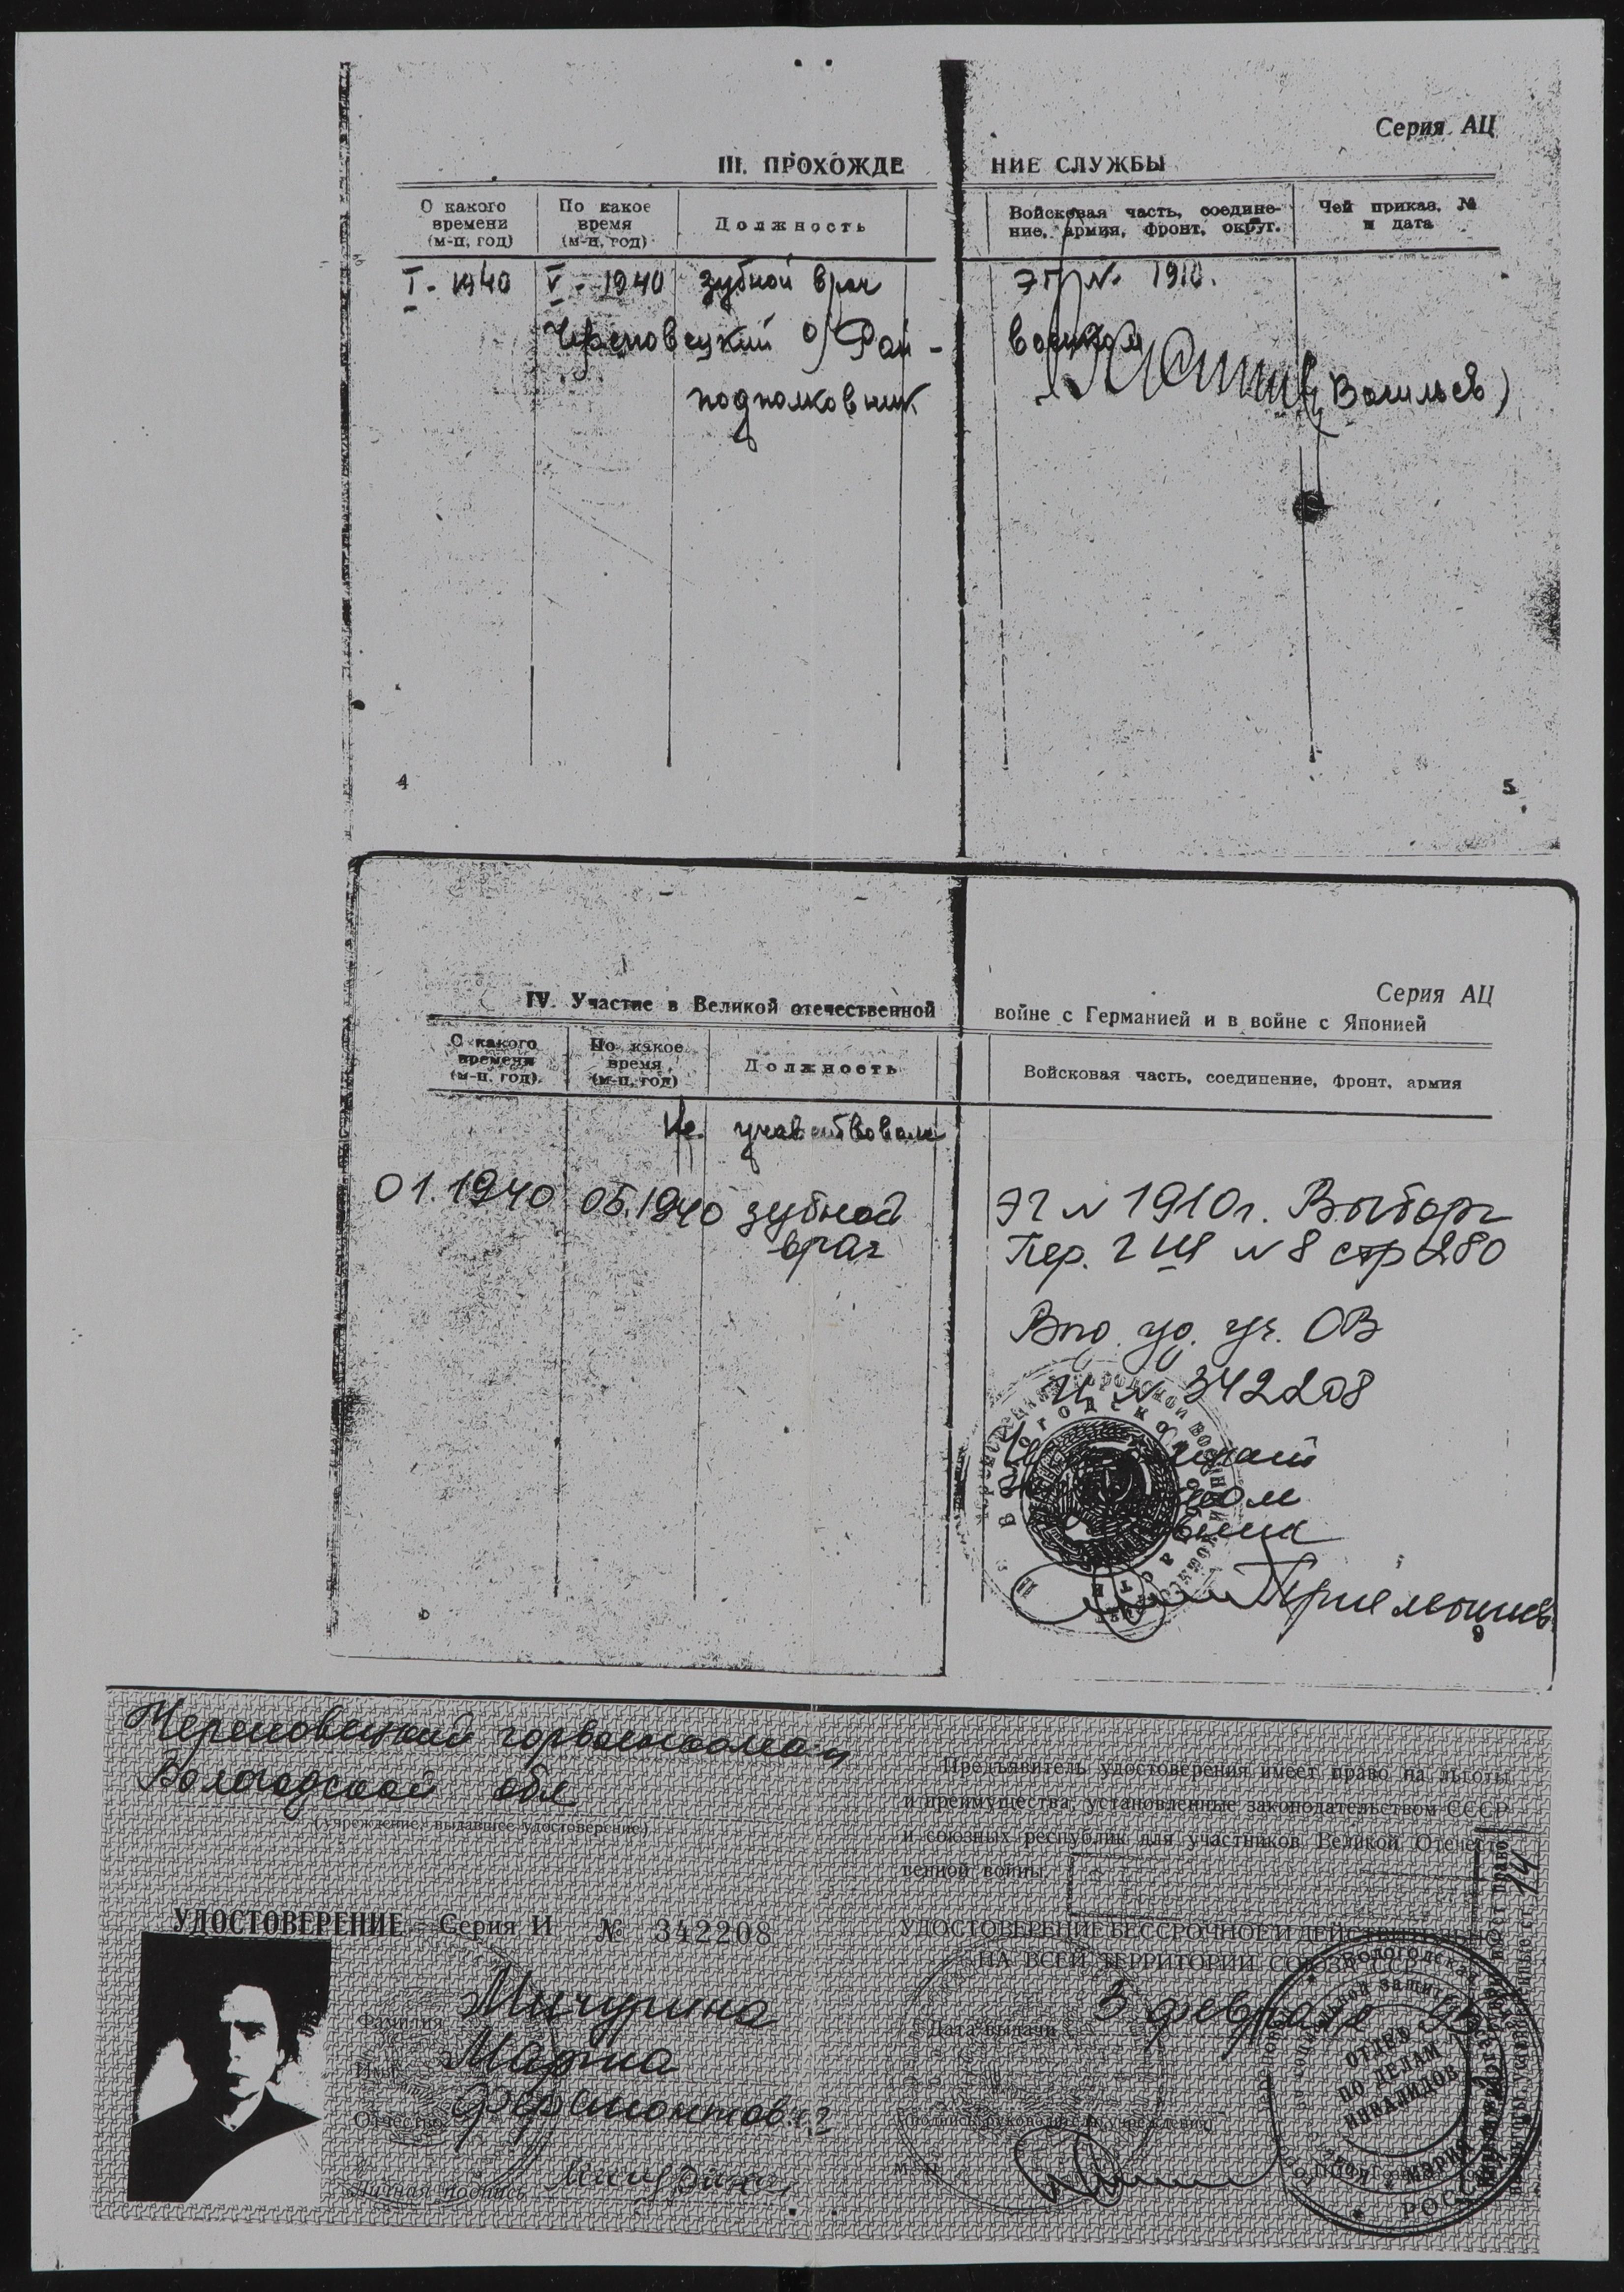 Серия АЦ
III. ПРОХОЖДЕ НИЕ СЛУЖБЫ
С какого времени (м-ц, год)
По какое время (м-ц, год)
Должность
Войсковая часть, соедине-
ние, армия, фронт, округ.
Чей приказ, №
и дата
I - 1940 V - 1940 зубной врач ЭГ № 1910.
Череповецкий о/Рай- военком
подполковник (Васильев)
4 5
Серия АЦ
IV. Участие в Великой отечественной войне с Германией и в войне с Японией
С какого времени (м-ц, год)
По какое время (м-ц, год)
Должность
Войсковая часть, соединение, фронт, армия
Не участвовала
01.1940 05.1940 зубной врач
ЭГ № 1910 г. Выборг
Пер. ГШ № 8 стр 280
уд. уч. ОВ
И № 342208
9
Череповецкий горвоенкомат
Вологодской обл
(учреждение, выдавшее удостоверение)
УДОСТОВЕРЕНИЕ Серия И № 342208
Фамилия Мичурина
Имя Мария
Отчество
Личная подпись
Предъявитель удостоверения имеет право на льготы
и преимущества, установленные законодательством СССР
и союзных республик для участников Великой Отечест-
венной войны.
УДОСТОВЕРЕНИЕ БЕССРОЧНОЕ И ДЕЙСТВИТЕЛЬНО
НА ВСЕЙ ТЕРРИТОРИИ СОЮЗА ССР
Дата выдачи 3 февраля
(подпись руководителя учреждения)
М. П.
ОТДЕЛ
ПО ДЕЛАМ
ИНВАЛИДОВ
МЭРИЯ